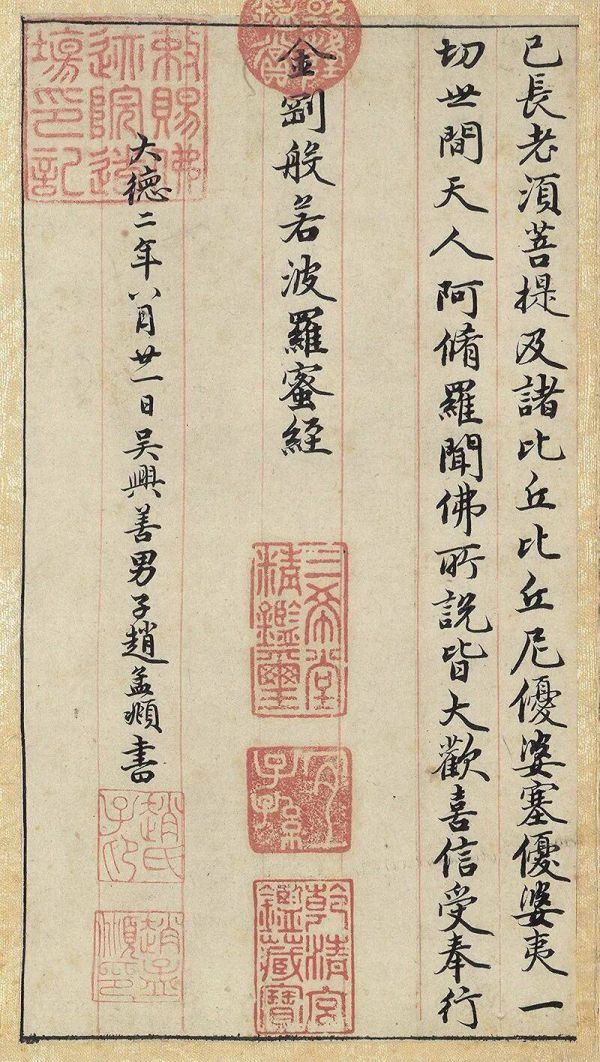 已長老須菩提及諸比丘比丘尼優婆塞優婆夷一
切世間天人阿脩羅聞佛所說皆大歡喜信受奉行
乾隆鑑賞
金剛般若波羅蜜經
三希堂精鑑璽
宜子孫
乾清宮鑑藏寶
敕賜佛迹院道場印記
大德二年八月廿一日吳興善男子趙孟頫書
趙氏子昂
趙孟頫印